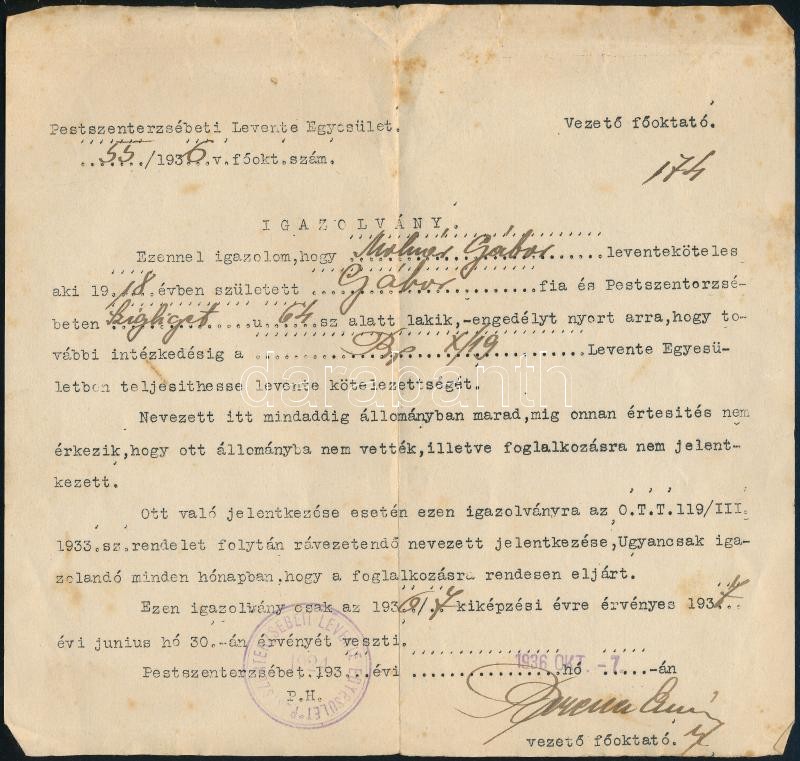 Pestszenterzsébeti Levente Egyesület.
Vezető főoktató.
55/1936.v.főokt.szám.
174
IGAZOLVÁNY.
Ezennel igazolom,hogy Molnár Gábor leventeköteles
aki 1918.évben született Gábor fia és Pestszentorzsé-
beten Szigliget u.64 sz alatt lakik,-engedélyt nyert arra,hogy to-
vábbi intézkedésig a Bp X/19 Levente Egyesü-
letben teljesithesse levente kötelezettségét.
darabanth
Nevezett itt mindaddig állományban marad,mig onnan értesités nem
érkezik,hogy ott állományba nem vették,illetve foglalkozásra nem jelent-
kezett.
Ott való jelentkezése esetén ezen igazolványra az O.T.T.119/III.
1933.sz.rendelet folytán rávezetendő nevezett jelentkezése,Ugyancsak iga-
zolandó minden hónapban,hogy a foglalkozásra rendesen eljárt.
Ezen igazolvány csak az 1936/7 kiképzési évre érvényes 1937.
évi junius hó 30.-án érvényét veszti.
Pestszenterzsébet.193...évi ..................hó ......-án
1936 OKT. -7
P.H.
PESTSZENTERZSÉBETI LEVENTE EGYESÜLET
vezető főoktató.